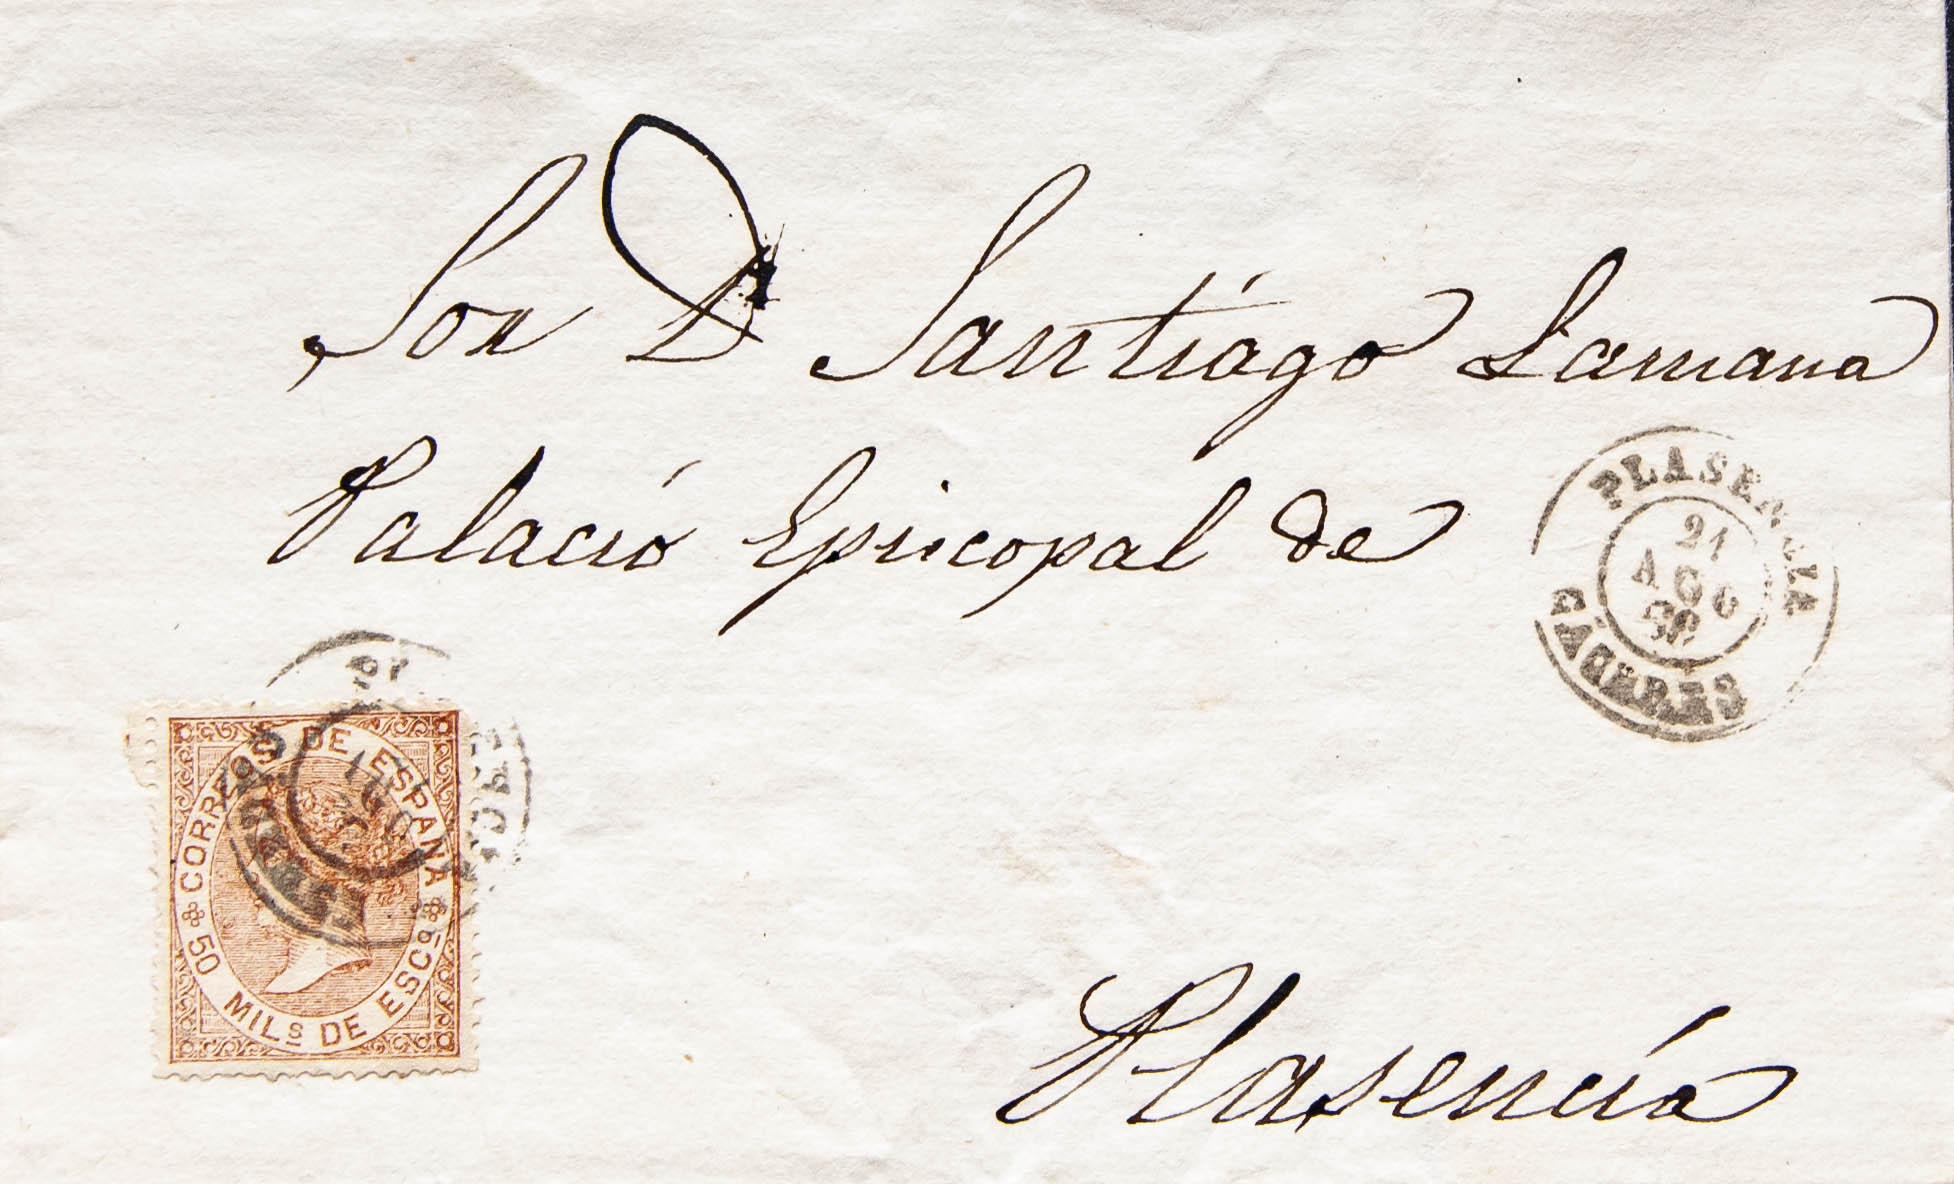 Sor D Santiago Lamana
Palacio Episcopal de
PLASENCIA
21
AGO
68
CÁCERES
CORREOS DE ESPAÑA
50 MILS DE ESCO
Plasencia